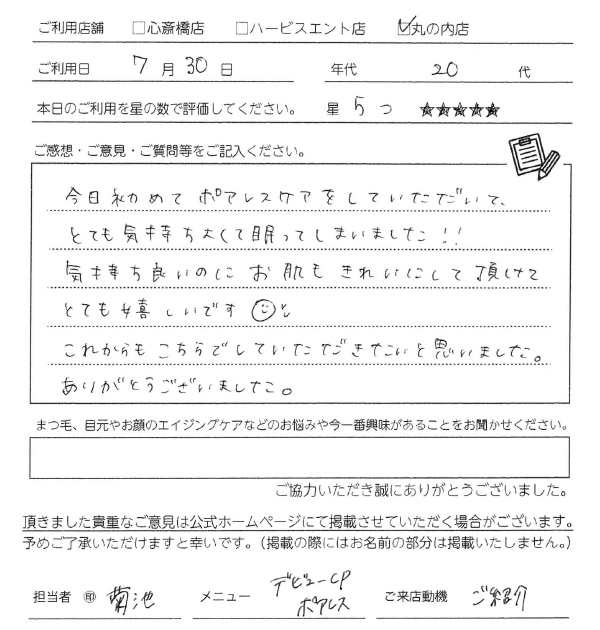 ご利用店舗 □心斎橋店 □ハービスエント店 ☑丸の内店
ご利用日 7月30日 年代 20代
本日のご利用を星の数で評価してください。 星5つ ★★★★★
ご感想・ご意見・ご質問等をご記入ください。
今日初めてポアレスケアをしていただいて、
とても気持ちよくて眠ってしまいました!!
気持ち良いのにお肌もきれいにして頂けて
とても嬉しいです
これからもこちらでしていただきたいと思いました。
ありがとうございました。
まつ毛、目元やお顔のエイジングケアなどのお悩みや今一番興味があることをお聞かせください。
ご協力いただき誠にありがとうございました。
頂きました貴重なご意見は公式ホームページにて掲載させていただく場合がございます。
予めご了承いただけますと幸いです。(掲載の際にはお名前の部分は掲載いたしません。)
担当者 ㊞ 菊池 メニュー デビューCP ご来店動機 ご紹介
ポアレス